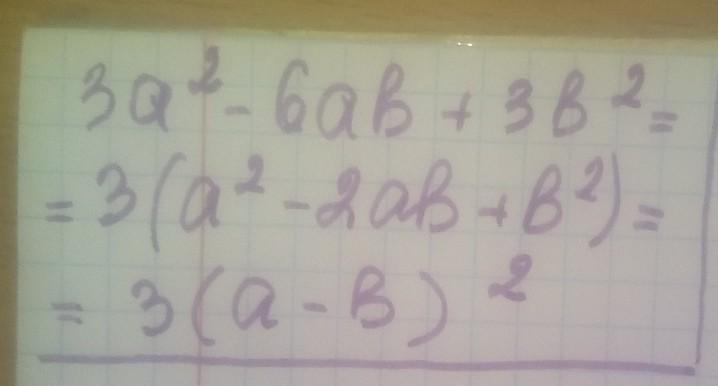 3a² - 6ab + 3b² =
= 3(a² - 2ab + b²) =
= 3(a - b)²